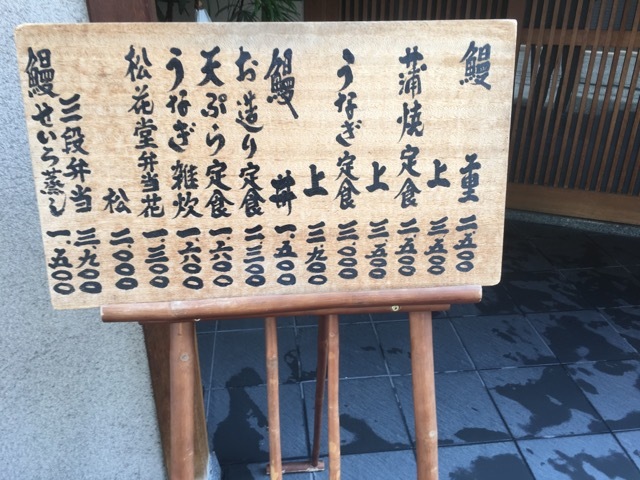 鰻重 二.五〇〇
上 三.五〇〇
蒲焼定食 二.五〇〇
上 三.五〇〇
うなぎ定食 二.〇〇〇
上 三.九〇〇
鰻丼 一.五〇〇
お造り定食 二.三〇〇
天ぷら定食 一.六〇〇
うなぎ雑炊 一.六〇〇
松花堂弁当花 一.三〇〇
松 二.〇〇〇
三段弁当 三.九〇〇
鰻せいろ蒸し 一.五〇〇